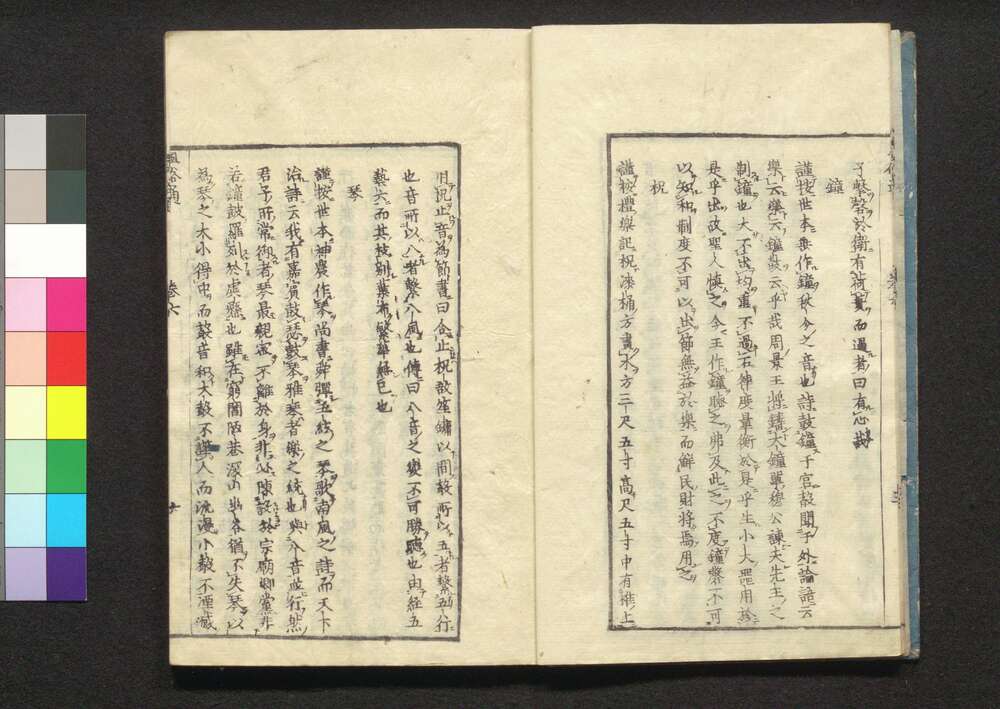 子擊磬於衛有荷蕢而過者曰有心哉
鐘
謹按世本垂作鐘秋分之音也詩鼓鐘于宮聲聞于外論語云
樂云樂云鐘鼓云乎哉周景王將鑄大鐘單穆公諫夫先王之
制鐘也大不出均重不過石律度量衡於是乎生小大器用於
是乎出故聖人慎之今王作鐘聽之弗及此之不度鐘聲不可
以知和制度不可以出節無益於樂而鮮民財將焉用之
柷
謹按禮樂記柷漆桶方畫木方三尺五寸高尺五寸中有椎上
用柷止音為節書曰合止柷敔笙鏞以間敔所以五者繫五行
也音所以八者繫八風也傳曰八音之變不可勝聽也由經五
藝六而其枝別葉布繁華無已也
琴
謹按世本神農作琴尚書舜彈五絃之琴歌南風之詩而天下
治詩云我有嘉賓鼓瑟鼓琴雅琴者樂之統也與八音並行然
君子所常御者琴最親密不離於身非必陳設於宗廟鄉黨非
若鐘鼓羅列於虡懸也雖在窮閻陋巷深山幽谷猶不失琴以
為琴之大小得中而聲音和大聲不譁人而流漫小聲不湮滅
卷六